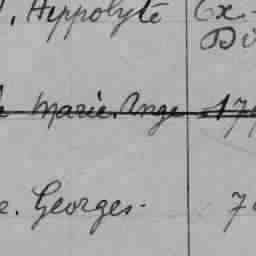 , Hippolyte Ex-
Marie. Ange 17
e. Georges. 7